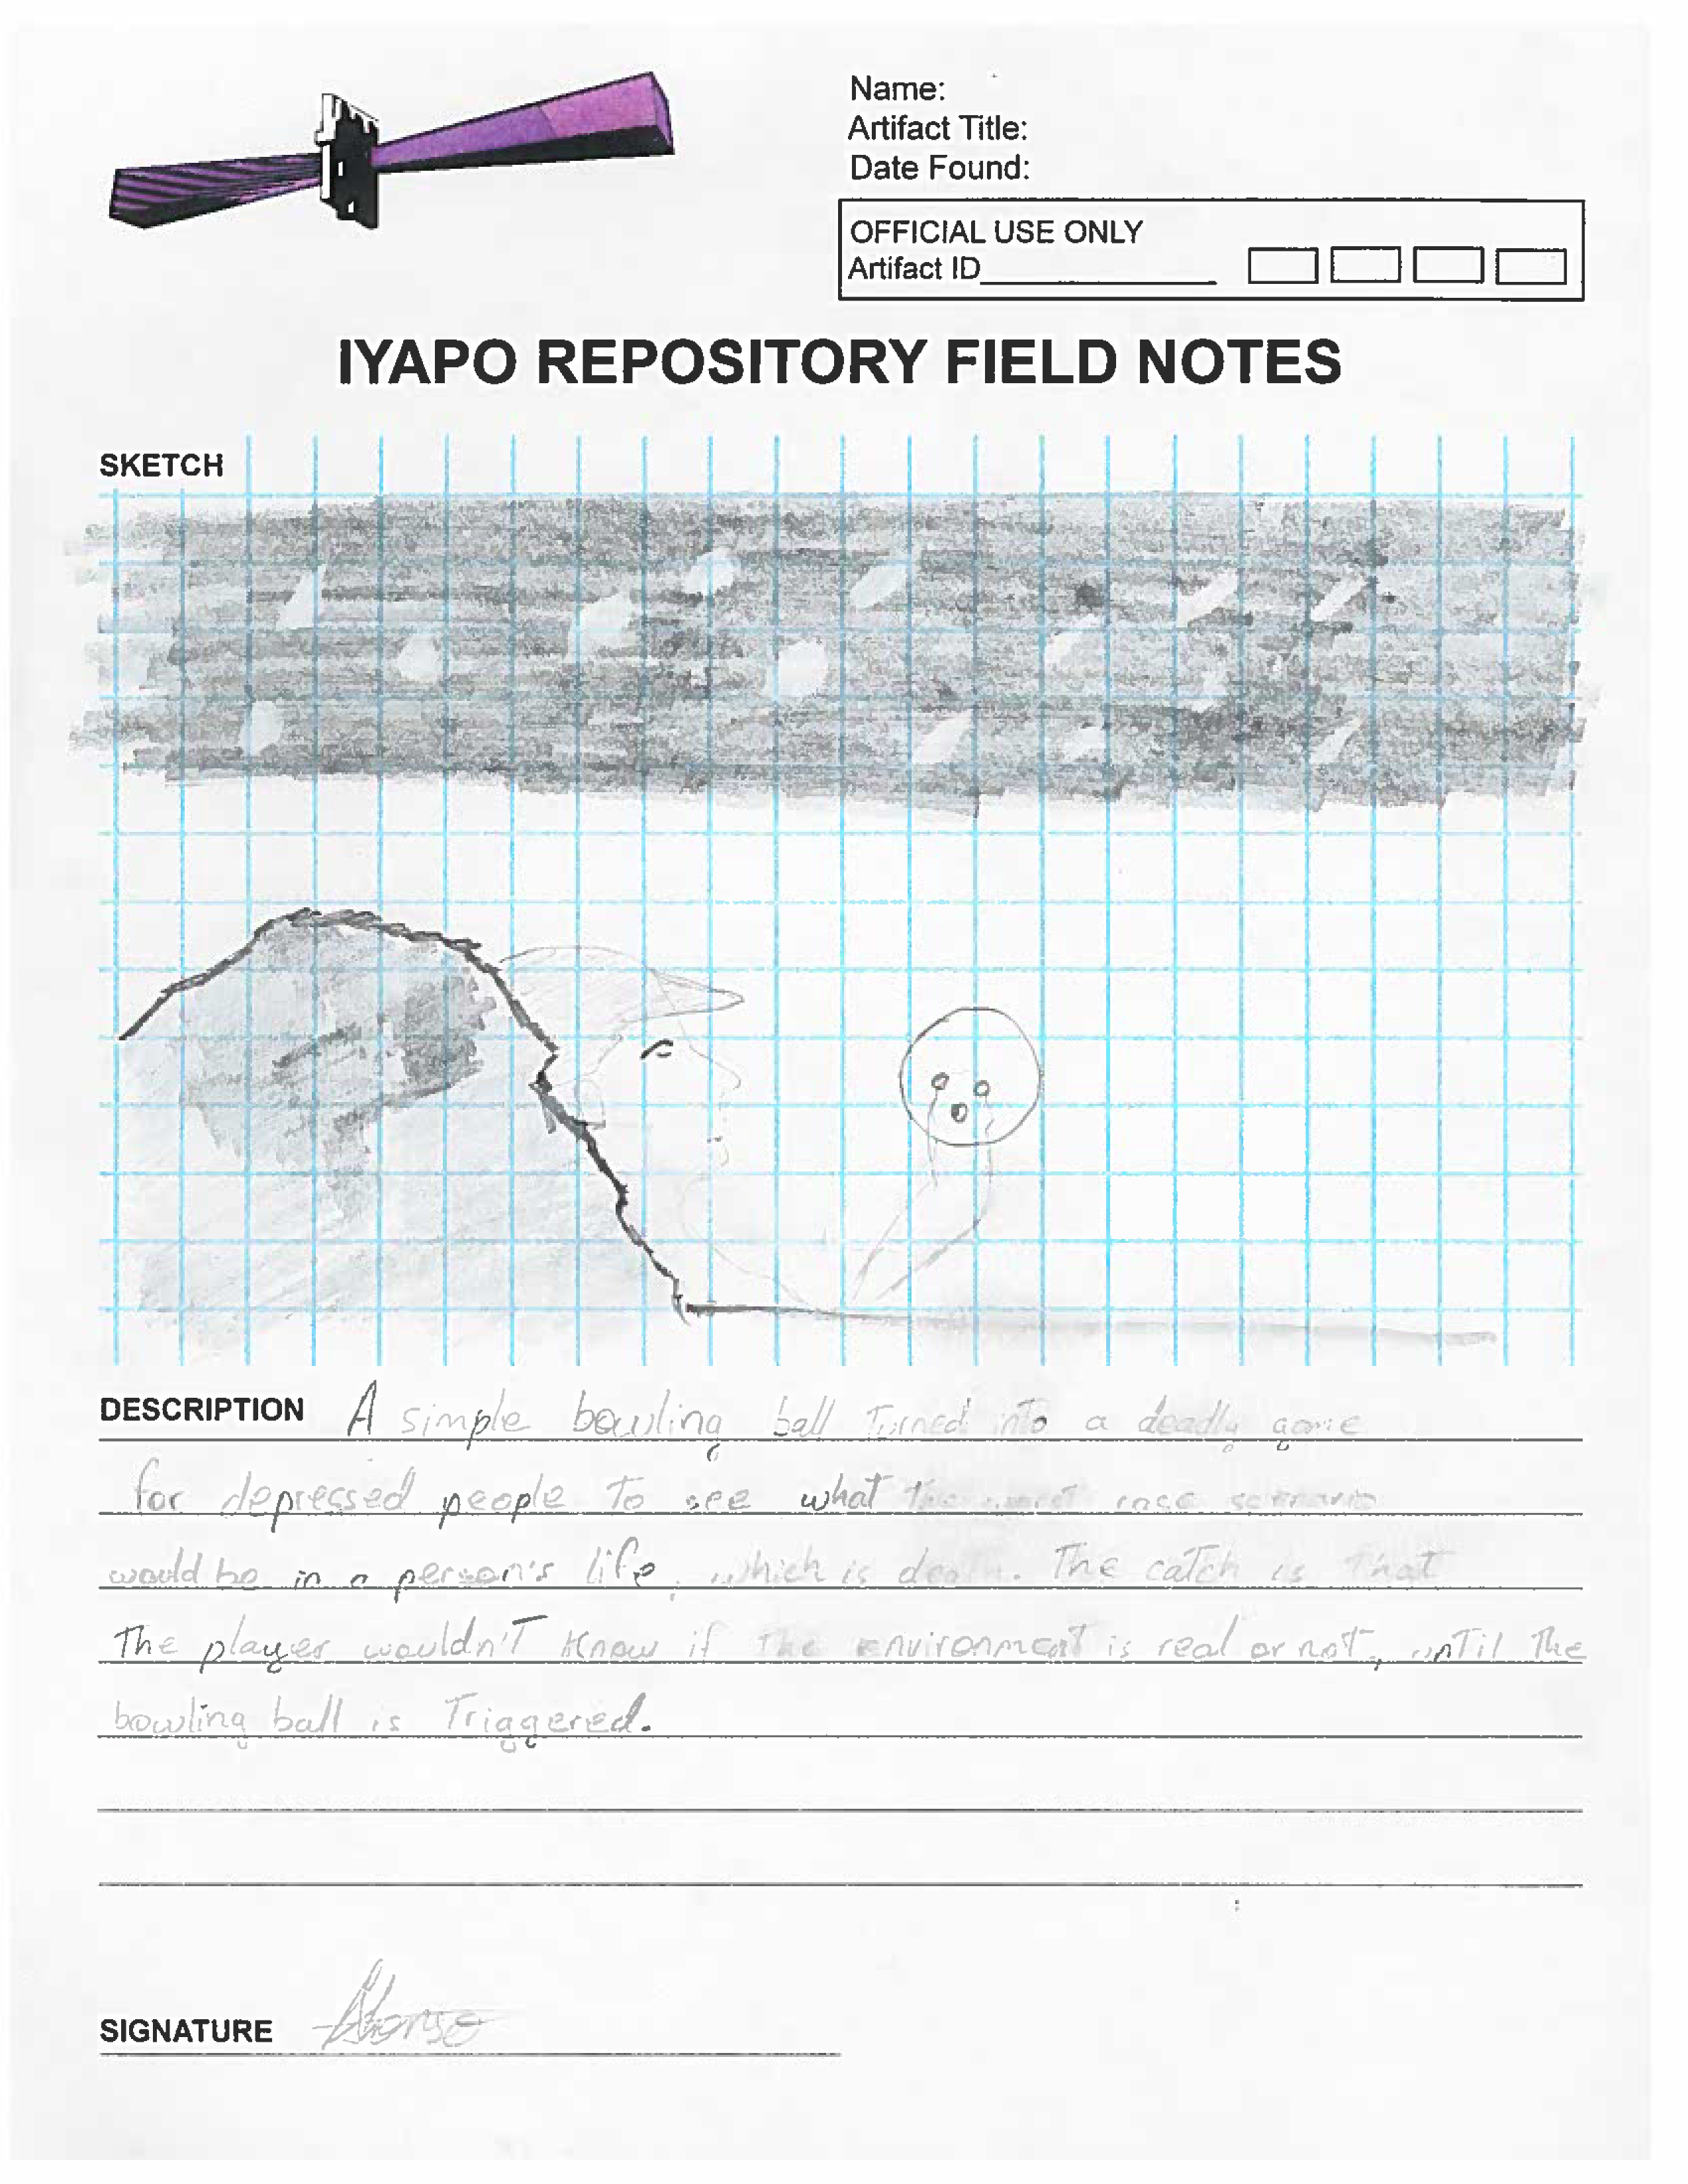 Name:
Artifact Title:
Date Found:
OFFICIAL USE ONLY
Artifact ID
IYAPO REPOSITORY FIELD NOTES
SKETCH
DESCRIPTION A simple bowling ball Turned into a deadly game
for depressed people To see what the worst case scenario
would be in a person's life, which is death. The catch is that
The player wouldn't know if the environment is real or not, unTil The
bowling ball is Triggered.
SIGNATURE Alonso